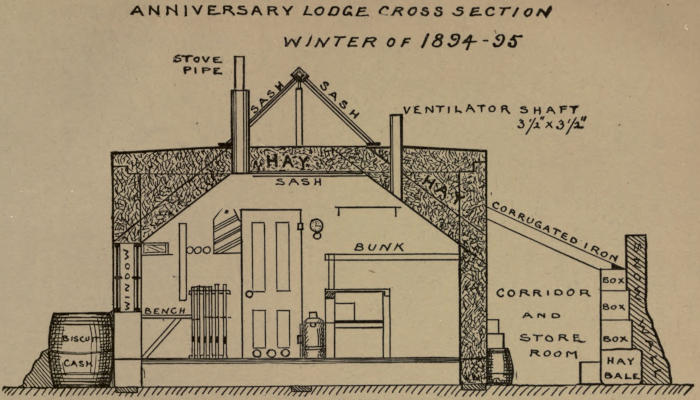 ANNIVERSARY LODGE CROSS SECTION
WINTER OF 1894-95
STOVE
PIPE
SASH
SASH
VENTILATOR SHAFT
3½"x3½"
HAY
HAY
SASH
CORRUGATED IRON
WINDOW
BUNK
BENCH
BISCUIT
CASH
CORRIDOR
AND
STORE
ROOM
BOX
BOX
BOX
HAY
BALE